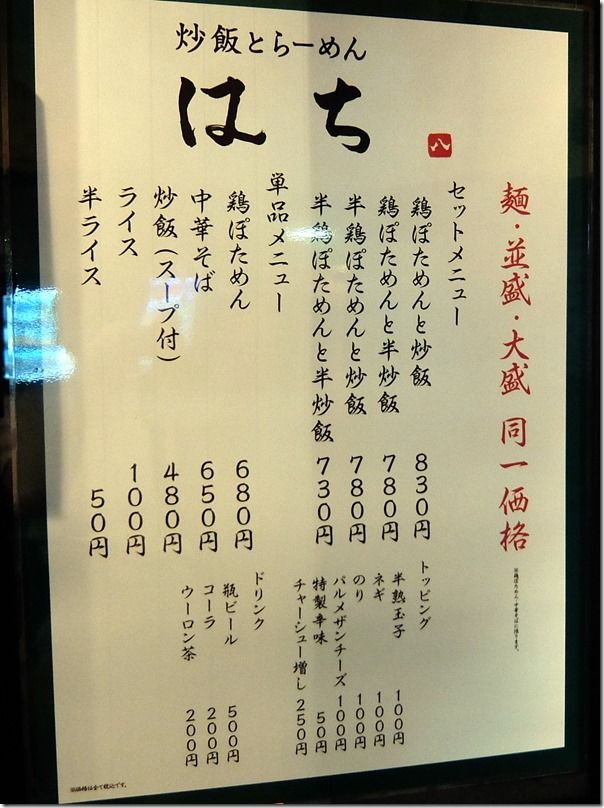 炒飯とらーめん
はち
八
麺・並盛・大盛 同一価格
※鶏ぽためん・中華そばに限ります。
セットメニュー
鶏ぽためんと炒飯 830円
鶏ぽためんと半炒飯 780円
半鶏ぽためんと炒飯 780円
半鶏ぽためんと半炒飯 730円
単品メニュー
鶏ぽためん 680円
中華そば 650円
炒飯(スープ付) 480円
ライス 100円
半ライス 50円
トッピング
半熟玉子 100円
ネギ 100円
のり 100円
パルメザンチーズ 100円
特製辛味 50円
チャーシュー増し 250円
ドリンク
瓶ビール 500円
コーラ 200円
ウーロン茶 200円
※価格は全て税込です。